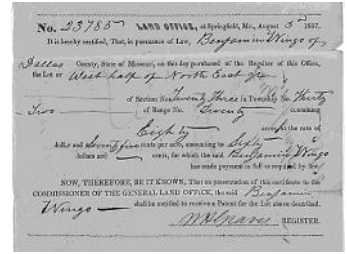 No. 23785 LAND OFFICE, at Springfield, Mo., August 3d 1857.
It is hereby certified, That, in pursuance of Law, Benjamin Wingo of
Dallas County, State of Missouri, on this day purchased of the Register of this Office,
the Lot or West half of North East qr
of Section No. Twenty Three in Township No. Thirty
Two of Range No. Twenty containing
Eighty acres, at the rate of
dollar and Seventy five cents per acre, amounting to Sixty
dollars and cents, for which the said Benjamin Wingo
has made payment in full as required by law.
NOW, THEREFORE, BE IT KNOWN, That on presentation of this certificate to the
COMMISSIONER OF THE GENERAL LAND OFFICE, the said Benjamin
Wingo shall be entitled to receive a Patent for the Lot above described.
REGISTER.